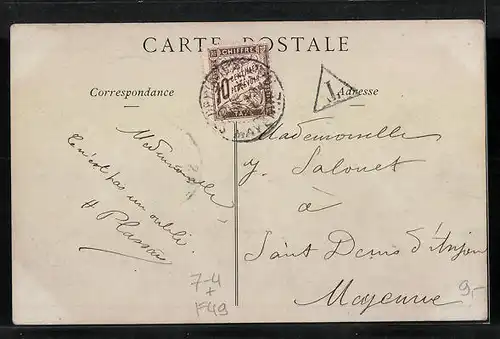 CARTE POSTALE
Correspondance
Adresse
CHIFFRE
10
TAXE
MAYENNE
T
Mademoiselle,
Ce n'est pas un oubli.
H Plassais
Mademoiselle
Y. Salouet
à
Saint Denis d'Anjou
Mayenne
7-4
+
F49
9,-